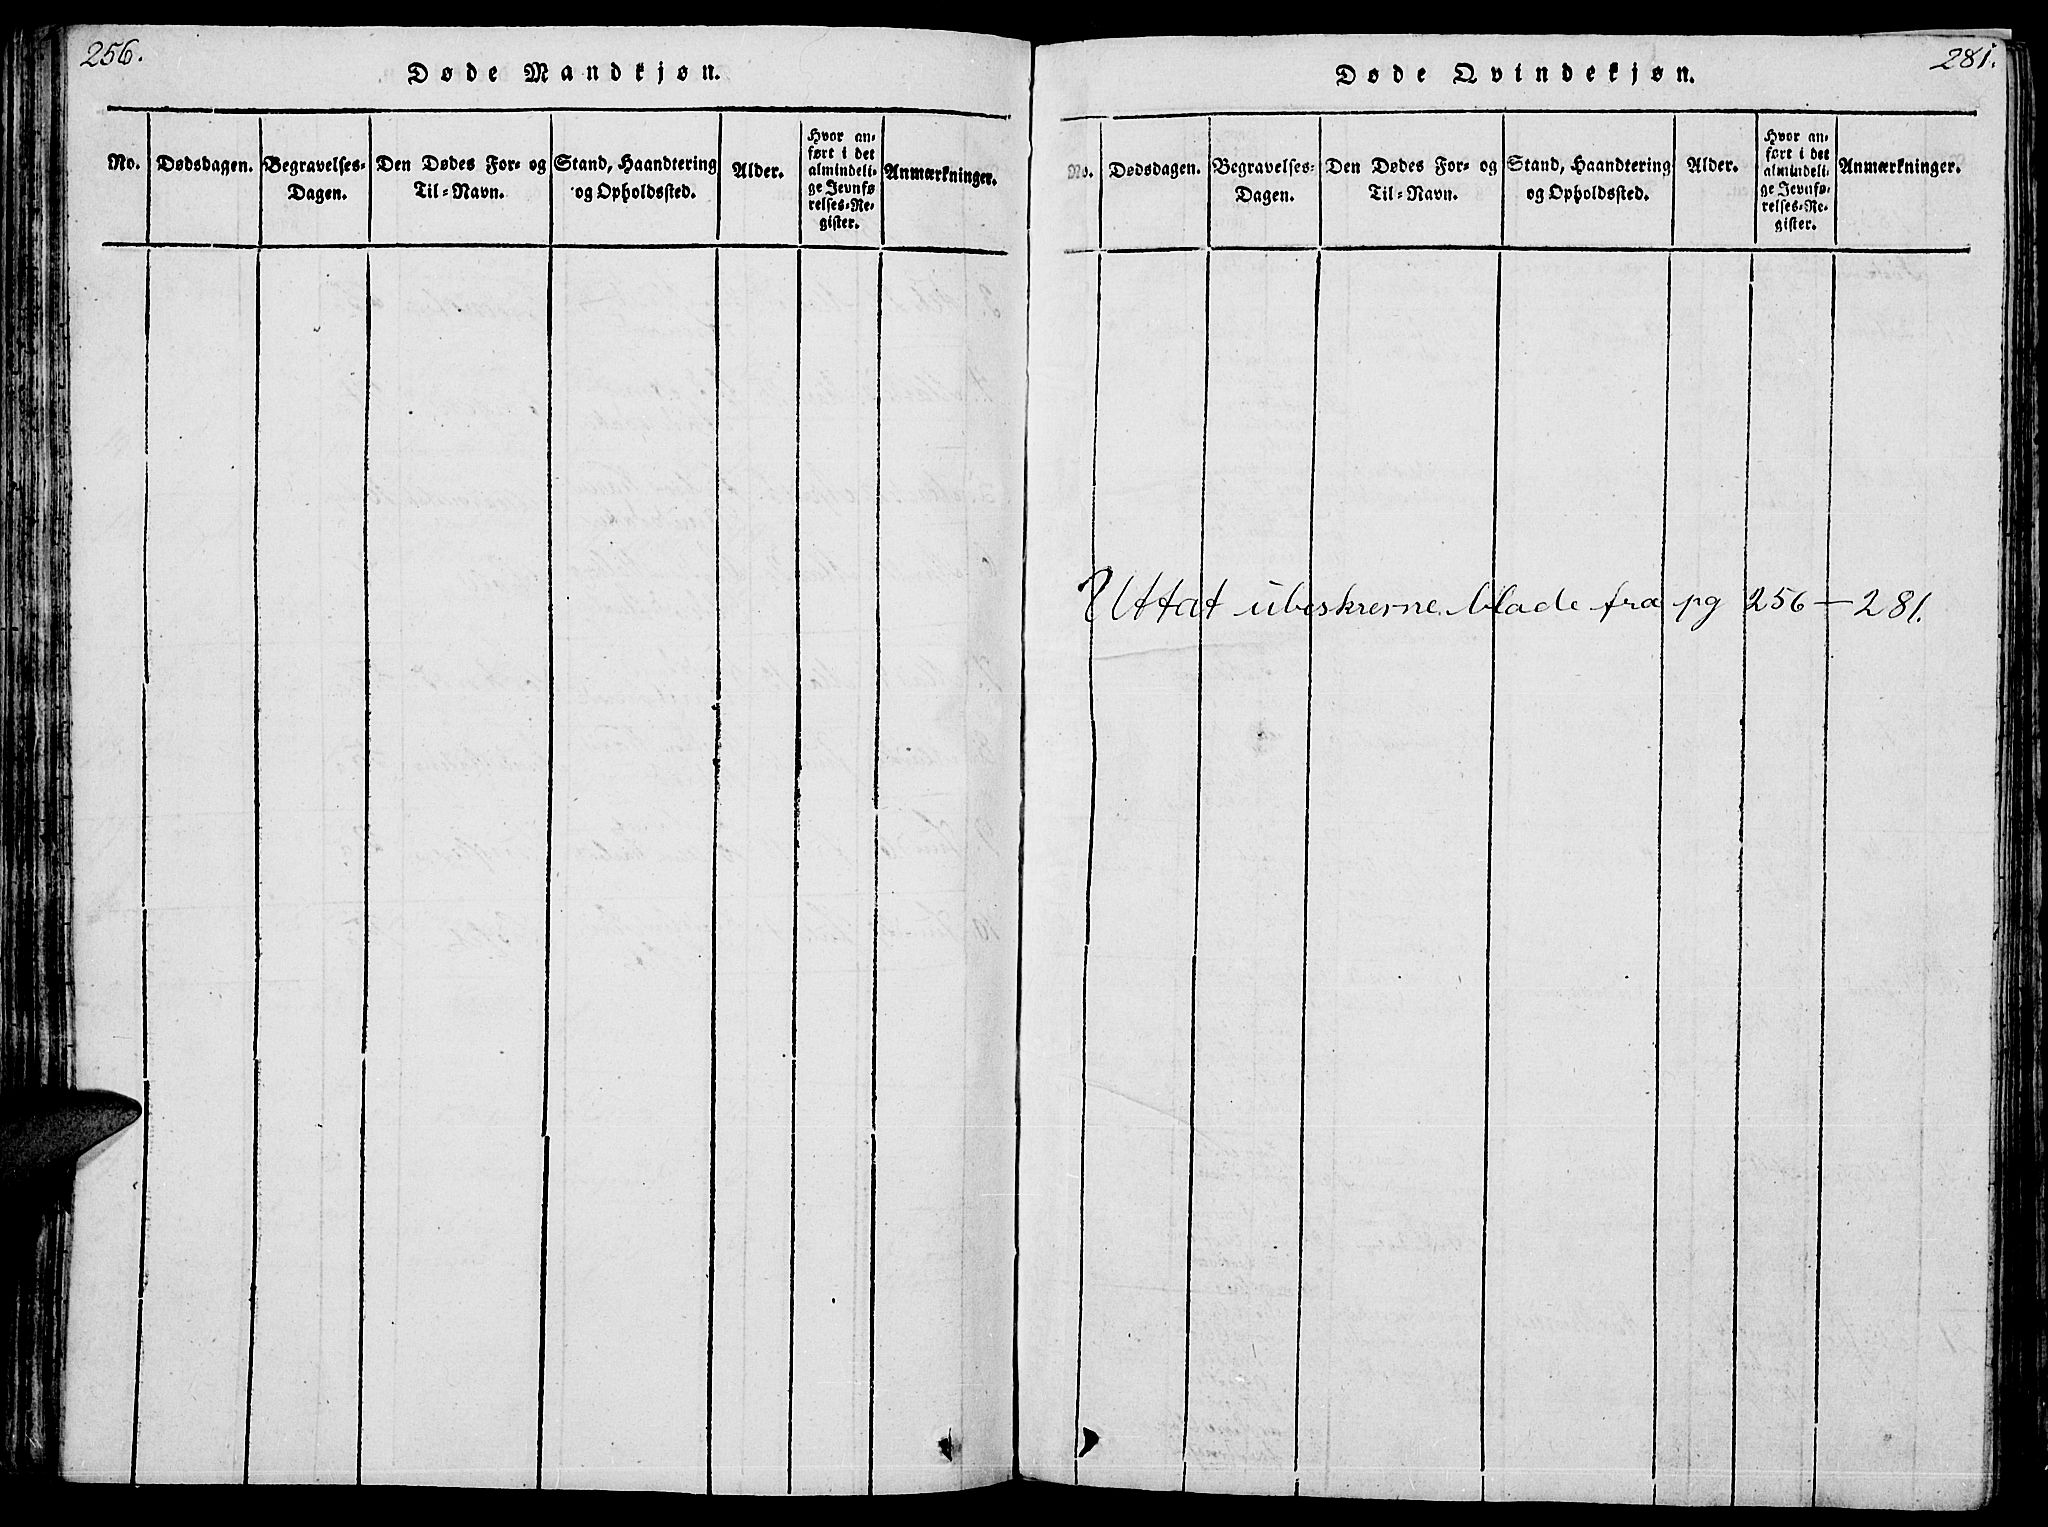 256.
Døde Mandkjøn.
No.
Dødsdagen.
Begravelses-
Dagen.
Den Dødes For- og
Til-Navn.
Stand, Haandtering
og Opholdssted.
Alder.
Hvor an-
ført i det
almindeli-
ge Jevnfø
relses-Re-
gister.
Anmærkninger.
281.
Døde Qvindekjøn.
No.
Dødsdagen.
Begravelses-
Dagen.
Den Dødes For- og
Til-Navn.
Stand, Haandtering
og Opholdssted.
Alder.
Hvor an-
ført i det
almindeli-
ge Jevnfø-
relses-Re-
gister.
Anmærkninger.
Uttat ubeskrevne blade fra pg 256 – 281.